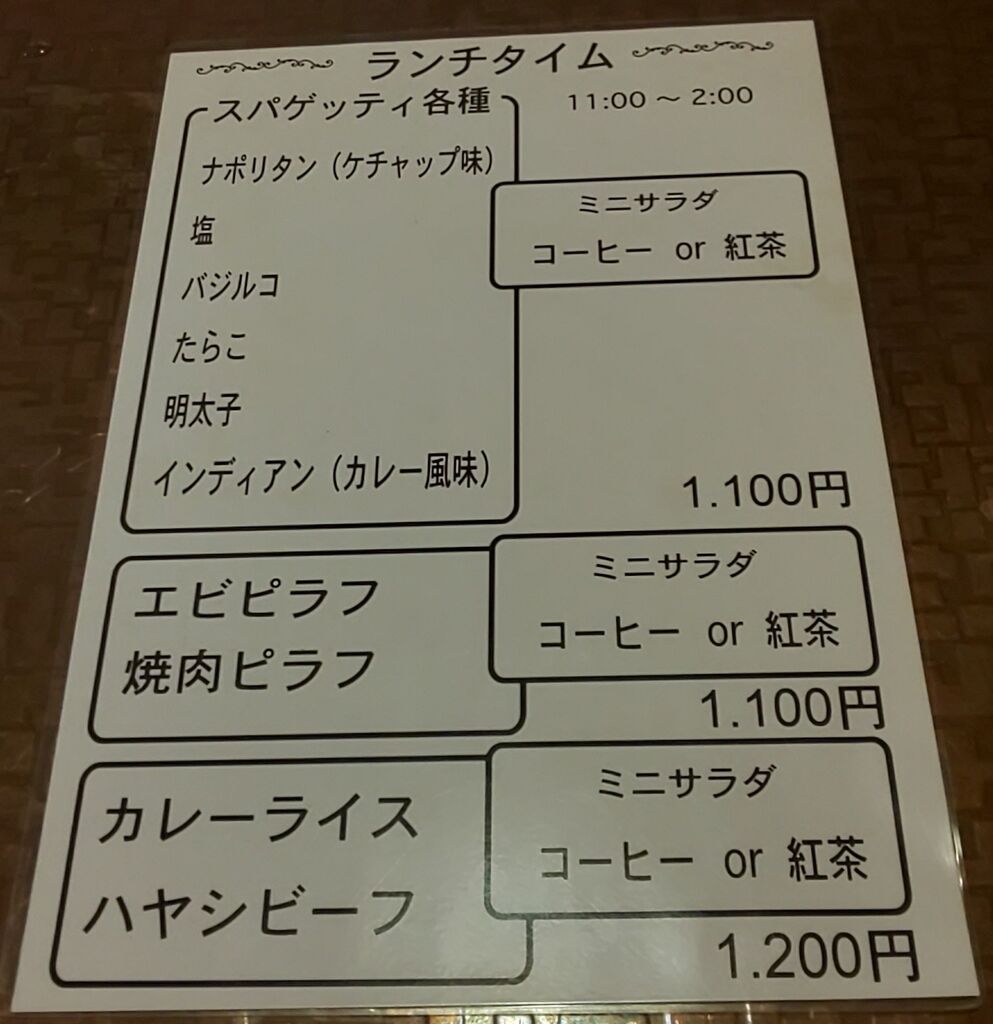 ランチタイム
スパゲッティ各種
11:00 ～ 2:00
ナポリタン（ケチャップ味）
塩
バジルコ
たらこ
明太子
インディアン（カレー風味）
ミニサラダ
コーヒー or 紅茶
1.100円
エビピラフ
焼肉ピラフ
ミニサラダ
コーヒー or 紅茶
1.100円
カレーライス
ハヤシビーフ
ミニサラダ
コーヒー or 紅茶
1.200円